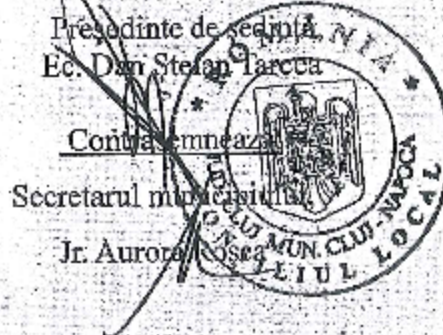 Președinte de ședință,
Ec. Dan Ștefan Tarcea
Contrasemnează
Secretarul municipiului,
Jr. Aurora Roșca
ROMÂNIA
CONSILIUL LOCAL
MUN. CLUJ-NAPOCA